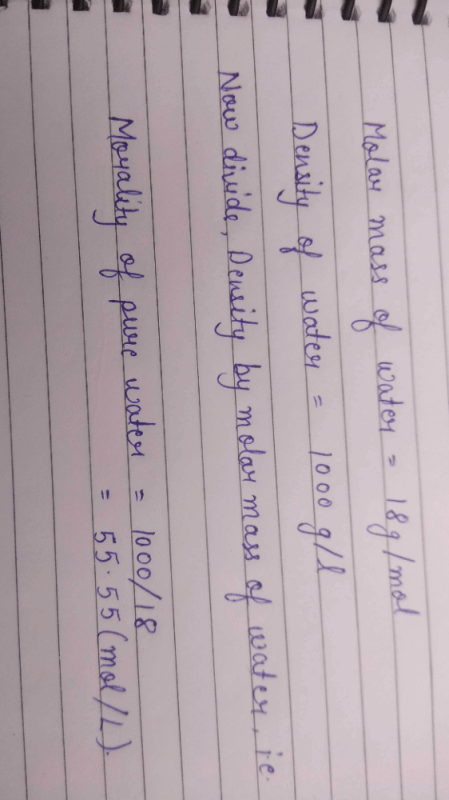 Molar mass of water = 18g/mol
Density of water = 1000 g/l
Now divide, Density by molar mass of water, i.e.
Morality of pure water = 1000/18
= 55.55 (mol/L).